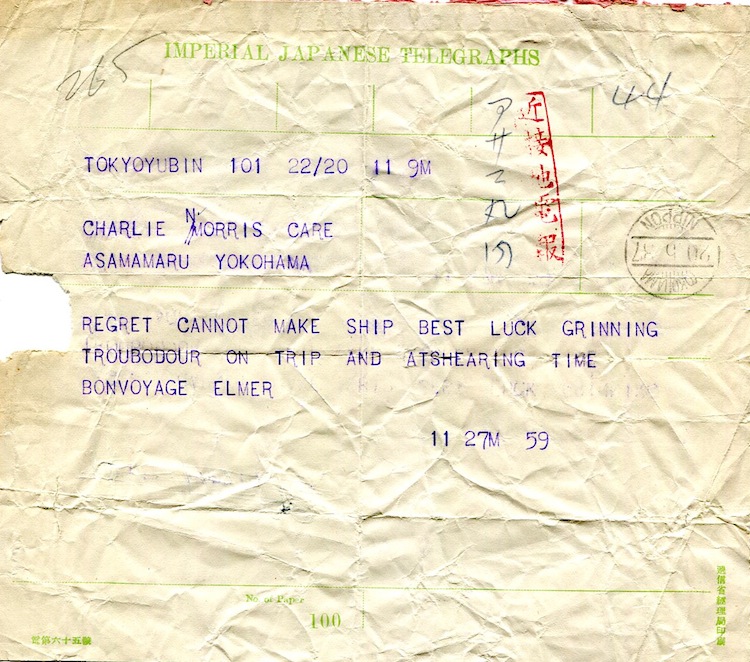 IMPERIAL JAPANESE TELEGRAPHS
265
44
近接地電報
アサマ丸内
TOKYOYUBIN 101 22/20 11 9M
CHARLIE N. MORRIS CARE
ASAMAMARU YOKOHAMA
NIPPON
20.6.37
YOKOHAMA
REGRET CANNOT MAKE SHIP BEST LUCK GRINNING
TROUBODOUR ON TRIP AND ATSHEARING TIME
BONVOYAGE ELMER
11 27M 59
No. of Paper
100
電第六十五號